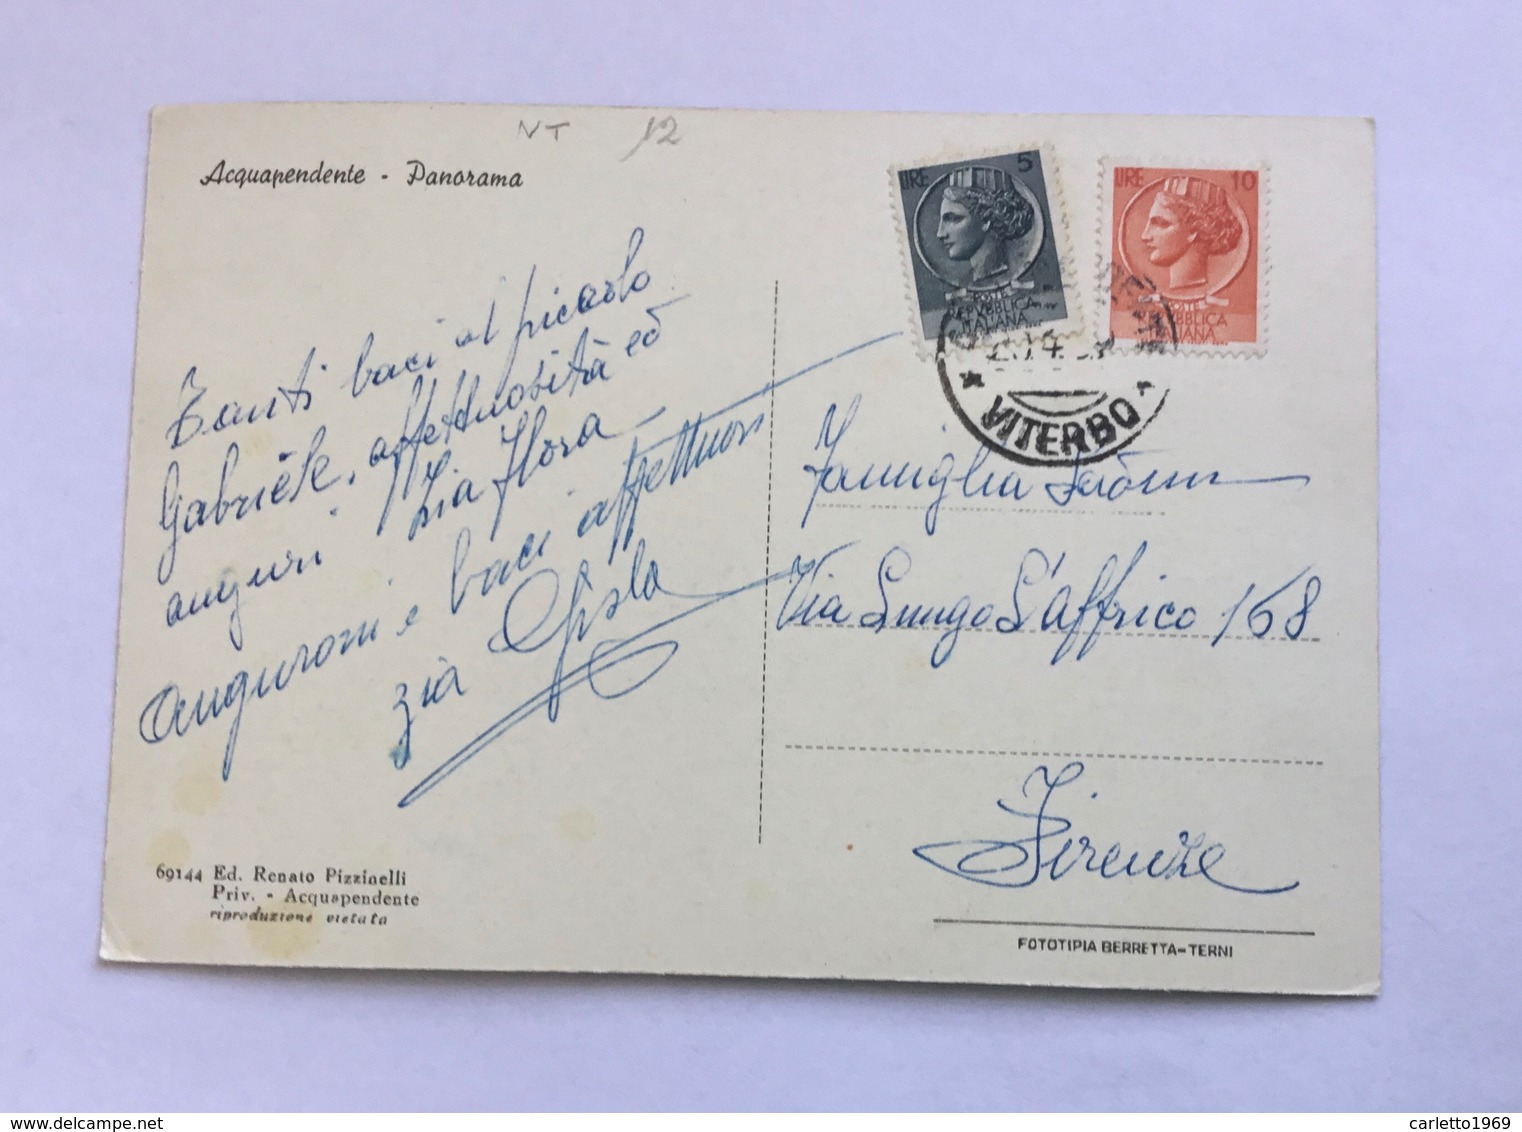 NT 12
Acquapendente - Panorama
Tanti baci al piccolo
Gabriele, affettuosità ed
auguri Zia Flora
auguroni e baci affettuosi
zia Gisla
69144 Ed. Renato Pizzinelli
Priv. - Acquapendente
riproduzione vietata
LIRE 5
POSTE
REPVBBLICA
ITALIANA
LIRE 10
POSTE
REPVBBLICA
ITALIANA
VITERBO
Famiglia
Via Lungo L'Affrico 168
Firenze
FOTOTIPIA BERRETTA-TERNI
carletto1969